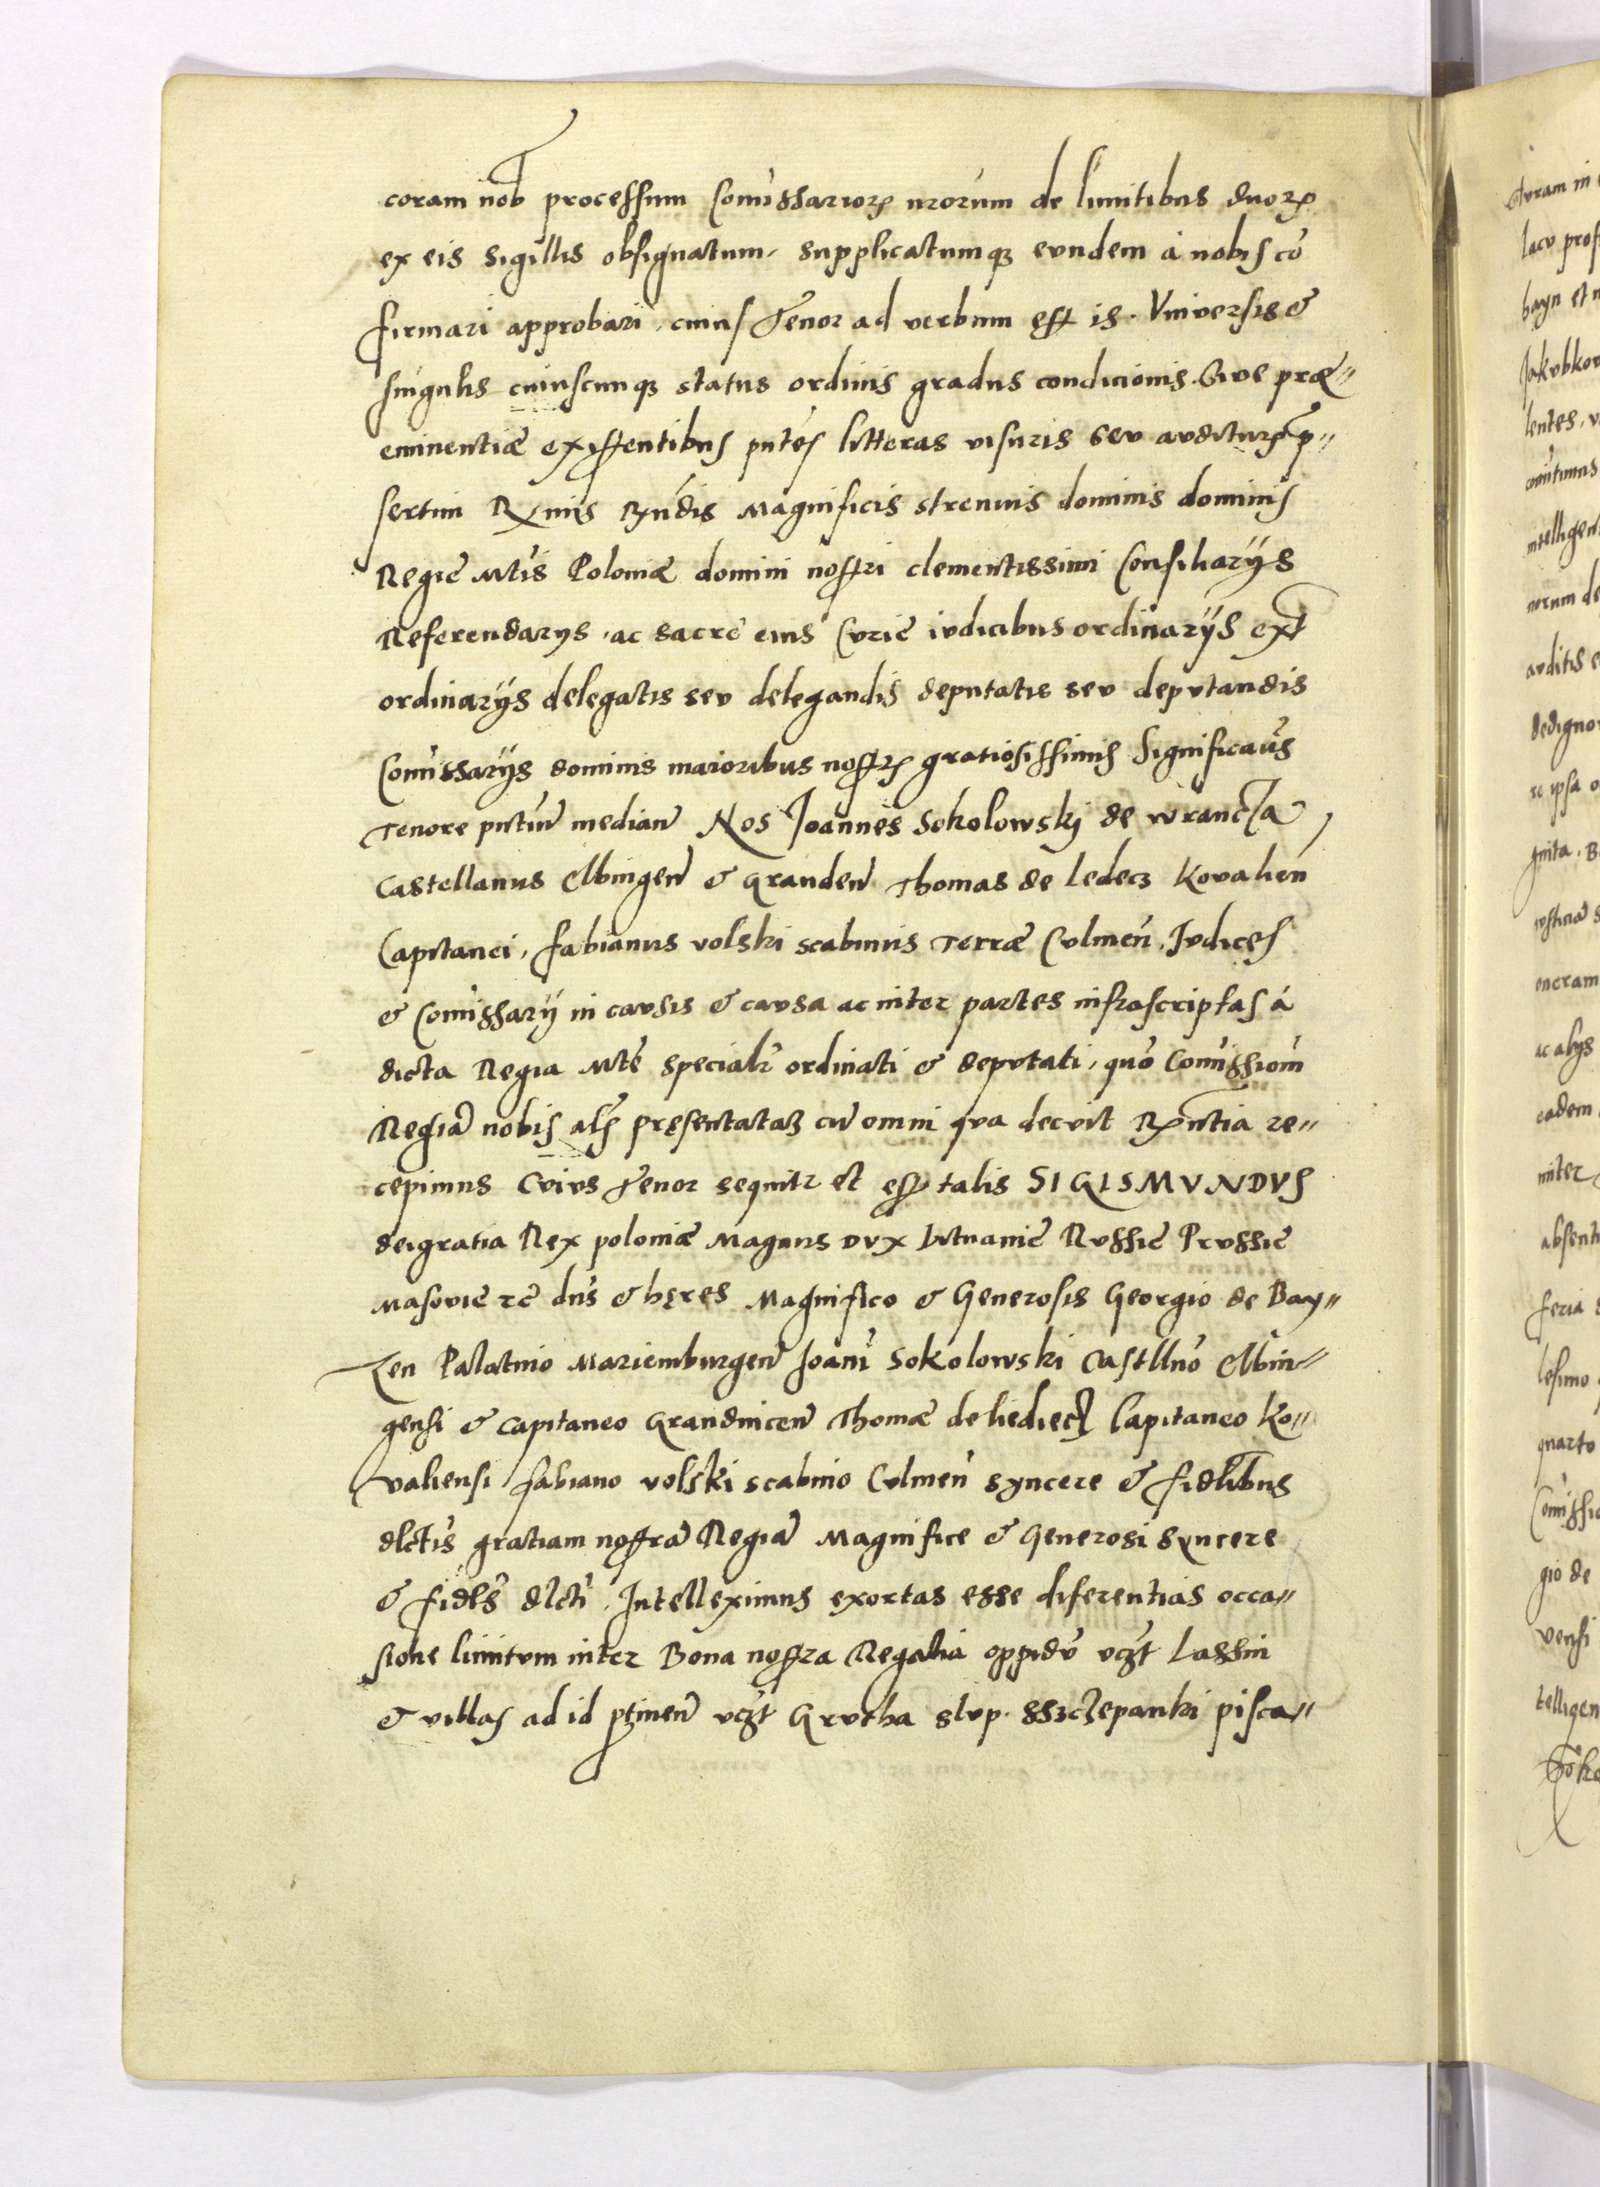 coram nob processum Comissarioꝝ nrorum de limitibus duoꝝ
ex eis sigillis obsignatum, supplicatumqꝫ eundem à nobis cō
firmari approbari, cuius Tenor ad verbum est is. Vniversis &
singulis cuiuscumqꝫ status ordinis gradus condicionis sive præ„
eminentiæ existentibus pntēs litteras visuris seu audituris p„
sertim Rxmis Rxndis Magnificis strenuis dominis dominis
Regie Mtis Poloniæ domini nostri clementissimi Consiliarÿs
Referendarÿs, ac sacre eius Curie iudicibus ordinarÿs ext
ordinarÿs delegatis seu delegandis deputatis seu deputandis
Comissarÿs dominis maioribus nostꝝ gratiosissimis Significaūs
Tenore pntiū mediañ Nos Joannes Sokolowski de wrancza
Castellanus Elbingeñ & Grandeñ Thomas de ledecz Kovalieñ
Capitanei, fabianus volski scabinus Terræ Culmeñ, Judices
& Comissarÿ in causis & causa ac inter partes infrascriptas á
dicta Regia Mte specialr ordinati & deputati, quō Comissiom
Regiā nobis als pręsentataꝫ cū omni qua decuit Rxntia re„
cepimus Cuius Tenor sequitr et est talis SIGISMVNDVS
deigratia Rex poloniæ Magnus Dux Lituanie Russie Prussie
Masovie rē dns & hęres Magnifico & Generosis Georgio de Bay„
zen Palatino Mariemburgeñ Joani Sokolowski Castllno Elbin„
gensi & Capitaneo Grandniceñ Thomæ de liediecz Capitaneo Ko„
valiensi fabiano volski scabino Culmeñ syncere & fidlibus
dlctis gratiam nostrā Regiā Magnifice & Generosi syncere
& fidels dlcti. Intelleximus exortas esse diferentias occa„
sione limitum inter Bona nostra Regalia oppidū vczt Lassin
& villas ad id ptineñ vczt Grutha slup. sszczepanki pisca„